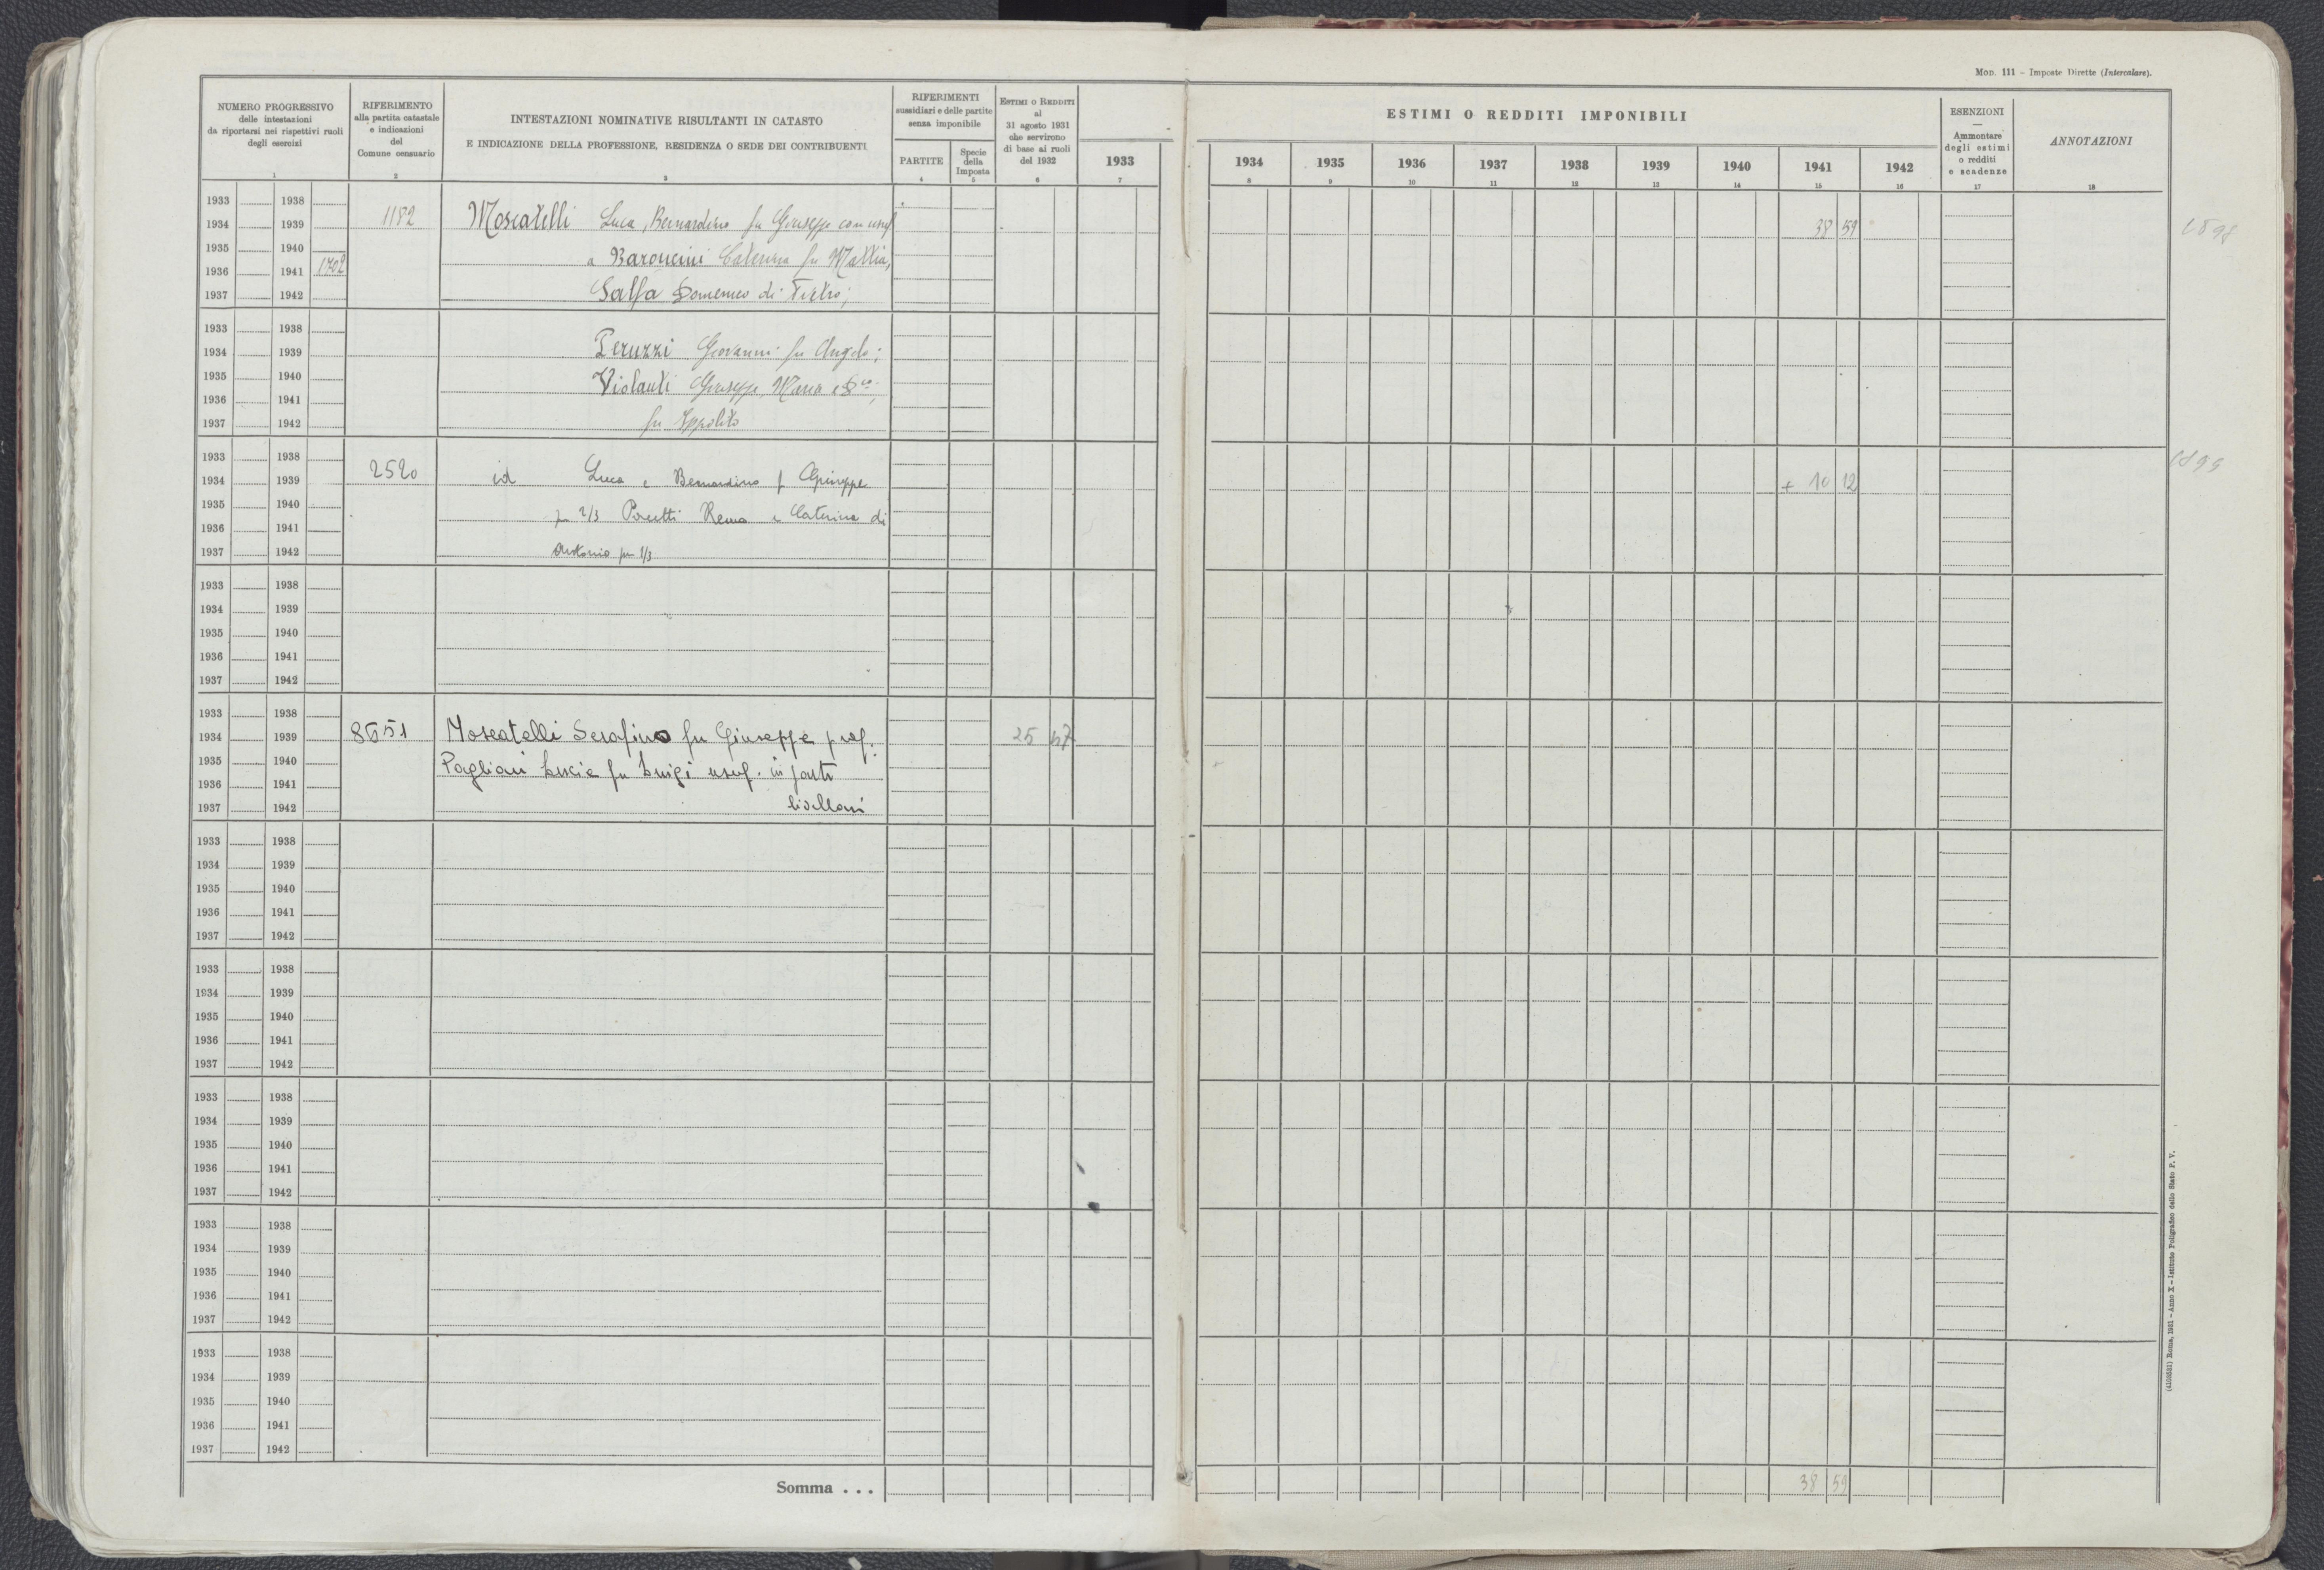 MOD. 111 – Imposte Dirette (Intercalare).
NUMERO PROGRESSIVO
delle intestazioni
da riportarsi nei rispettivi ruoli
degli esercizi
RIFERIMENTO
alla partita catastale
e indicazioni
del
Comune censuario
INTESTAZIONI NOMINATIVE RISULTANTI IN CATASTO
E INDICAZIONE DELLA PROFESSIONE, RESIDENZA O SEDE DEI CONTRIBUENTI
RIFERIMENTI
sussidiari e delle partite
senza imponibile
PARTITE
Specie
della
Imposta
ESTIMI O REDDITI
al
31 agosto 1931
che servirono
di base ai ruoli
del 1932
ESTIMI O REDDITI IMPONIBILI
1933 1934 1935 1936 1937 1938 1939 1940 1941 1942
ESENZIONI
—
Ammontare
degli estimi
o redditi
e scadenze
ANNOTAZIONI
1 2 3 4 5 6 7 8 9 10 11 12 13 14 15 16 17 18
1933 1938
1934 1939 1182 Moscatelli Luca, Bernardino fu Giuseppe con usuf 38 59 1898
1935 1940 a Baroncini Caterina fu Mattia,
1936 1941 1702
1937 1942 Salfa Domenico di Pietro;
1933 1938
1934 1939 Peruzzi Giovanni fu Angelo;
1935 1940 Violanti Giuseppe, Maria e Dco
1936 1941
1937 1942 fu Ippolito
1933 1938 1899
1934 1939 2520 id Luca e Bernardino f Giuseppe + 10 12
1935 1940 p 2/3 Poretti Remo e Caterina di
1936 1941
1937 1942 Antonio per 1/3
1933 1938
1934 1939
1935 1940
1936 1941
1937 1942
1933 1938
1934 1939 8651 Moscatelli Serafino fu Giuseppe prop. 25 67
1935 1940 Pagliari Lucia fu Luigi usuf. in parte
1936 1941
1937 1942 livellari
1933 1938
1934 1939
1935 1940
1936 1941
1937 1942
1933 1938
1934 1939
1935 1940
1936 1941
1937 1942
1933 1938
1934 1939
1935 1940
1936 1941
1937 1942
1933 1938
1934 1939
1935 1940
1936 1941
1937 1942
1933 1938
1934 1939
1935 1940
1936 1941
1937 1942
Somma . . . 38 59
Roma, 1931 – Anno X – Istituto Poligrafico dello Stato P. V.